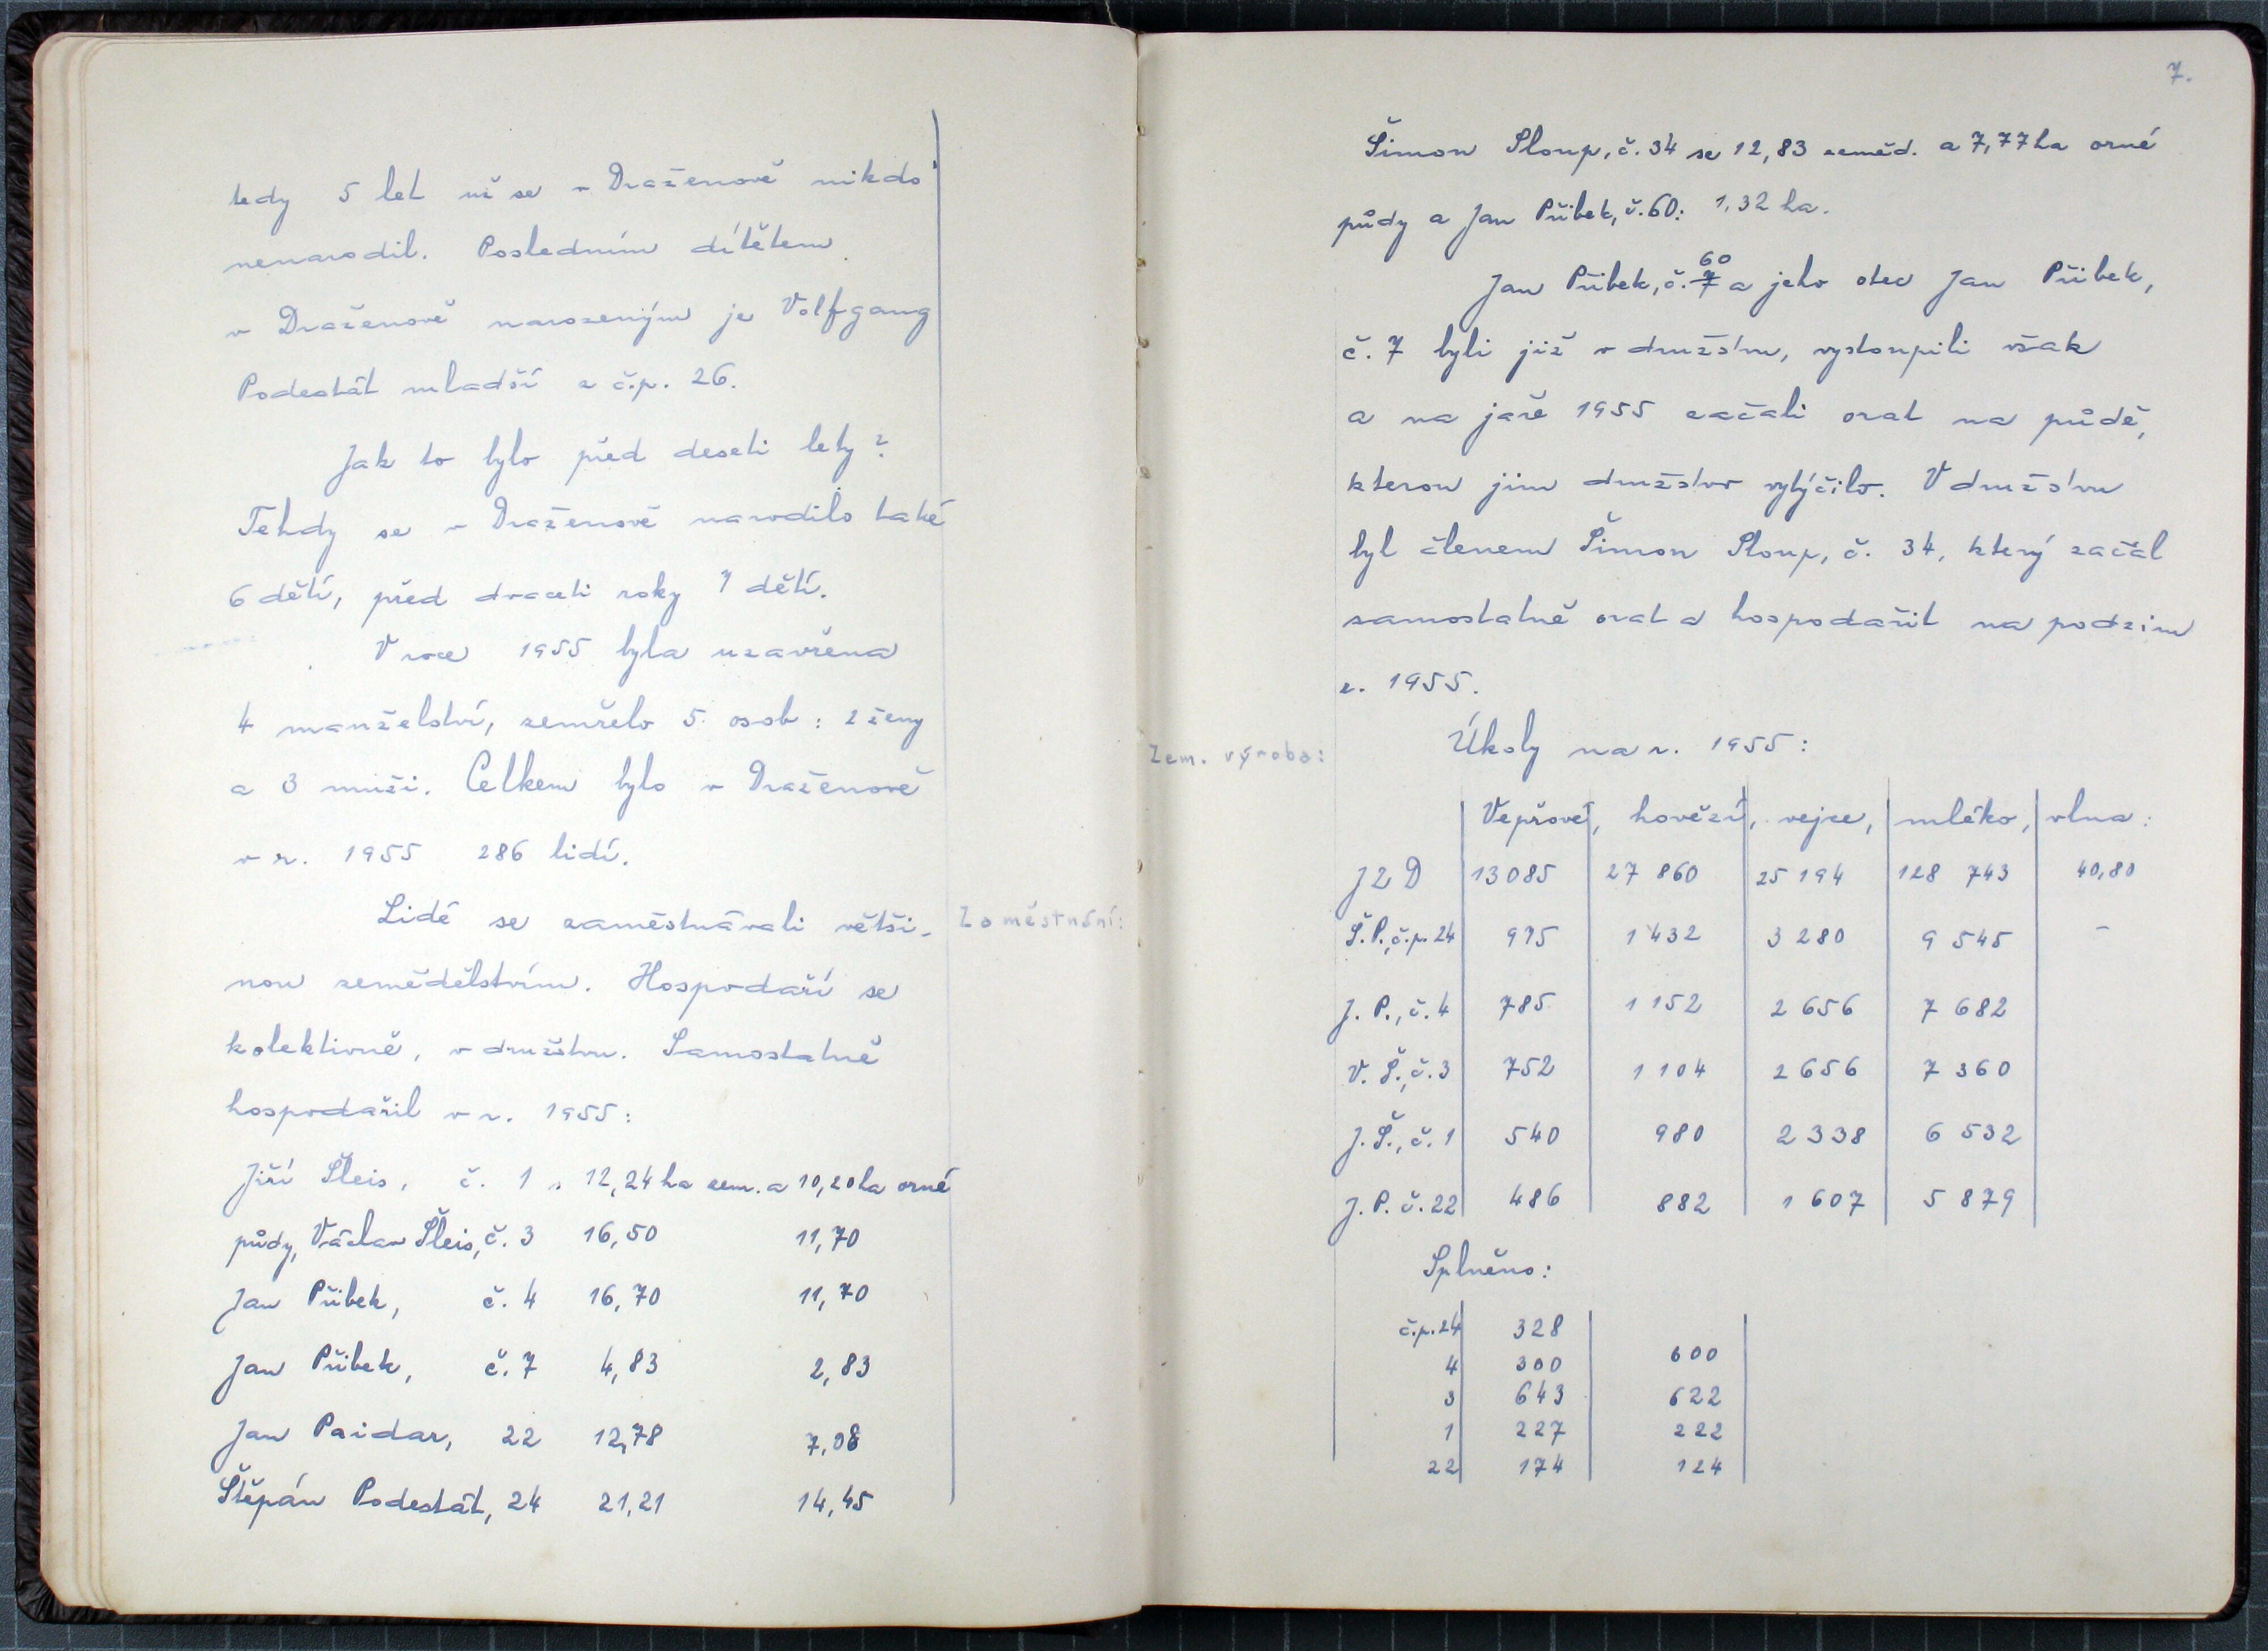 tedy 5 let už se v Draženově nikdo
nenarodil. Posledním dítětem
v Draženově narozeným je Volfgang
Podestát mladší z č.p. 26.
Jak to bylo před deseti lety?
Tehdy se v Draženově narodilo také
6 dětí, před dvaceti roky 7 dětí.
V roce 1955 byla uzavřena
4 manželství, zemřelo 5 osob: 2 ženy
a 3 muži. Celkem bylo v Draženově
v r. 1955 286 lidí.
Lidé se zaměstnávali větši-
Zaměstnání:
nou zemědělstvím. Hospodaří se
kolektivně, v družstvu. Samostatně
hospodařil v r. 1955:
Jiří Šleis, č. 1 s 12,24 ha zem. a 10,20 ha orné
půdy, Václav Šleis, č. 3 16,50 11,70
Jan Přibek, č. 4 16,70 11,70
Jan Přibek, č. 7 4,83 2,83
Jan Paidar, 22 12,78 7,08
Štěpán Podestát, 24 21,21 14,45
7.
Šimon Sloup, č. 34 se 12,83 zeměd. a 7,77 ha orné
půdy a Jan Přibek, č. 60: 1,32 ha.
60
Jan Přibek, č. 7 a jeho otec Jan Přibek,
č. 7 byli již v družstvu, vystoupili však
a na jaře 1955 začali orat na půdě,
kterou jim družstvo vytýčilo. V družstvu
byl členem Šimon Sloup, č. 34, který začal
samostatně orat a hospodařit na podzim
r. 1955.
Zem. výroba:
Úkoly na r. 1955:
Vepřové, hovězí, vejce, mléko, vlna:
JZD 13085 27 860 25 194 128 743 40,80
Š.P., č.p. 24 995 1 432 3 280 9 545 -
J. P., č. 4 785 1 152 2 656 7 682
V. Š., č. 3 752 1 104 2 656 7 360
J. Š., č. 1 540 980 2 338 6 532
J. P. č. 22 486 882 1 607 5 879
Splněno:
č.p. 24 328
4 300 600
3 643 622
1 227 222
22 174 124